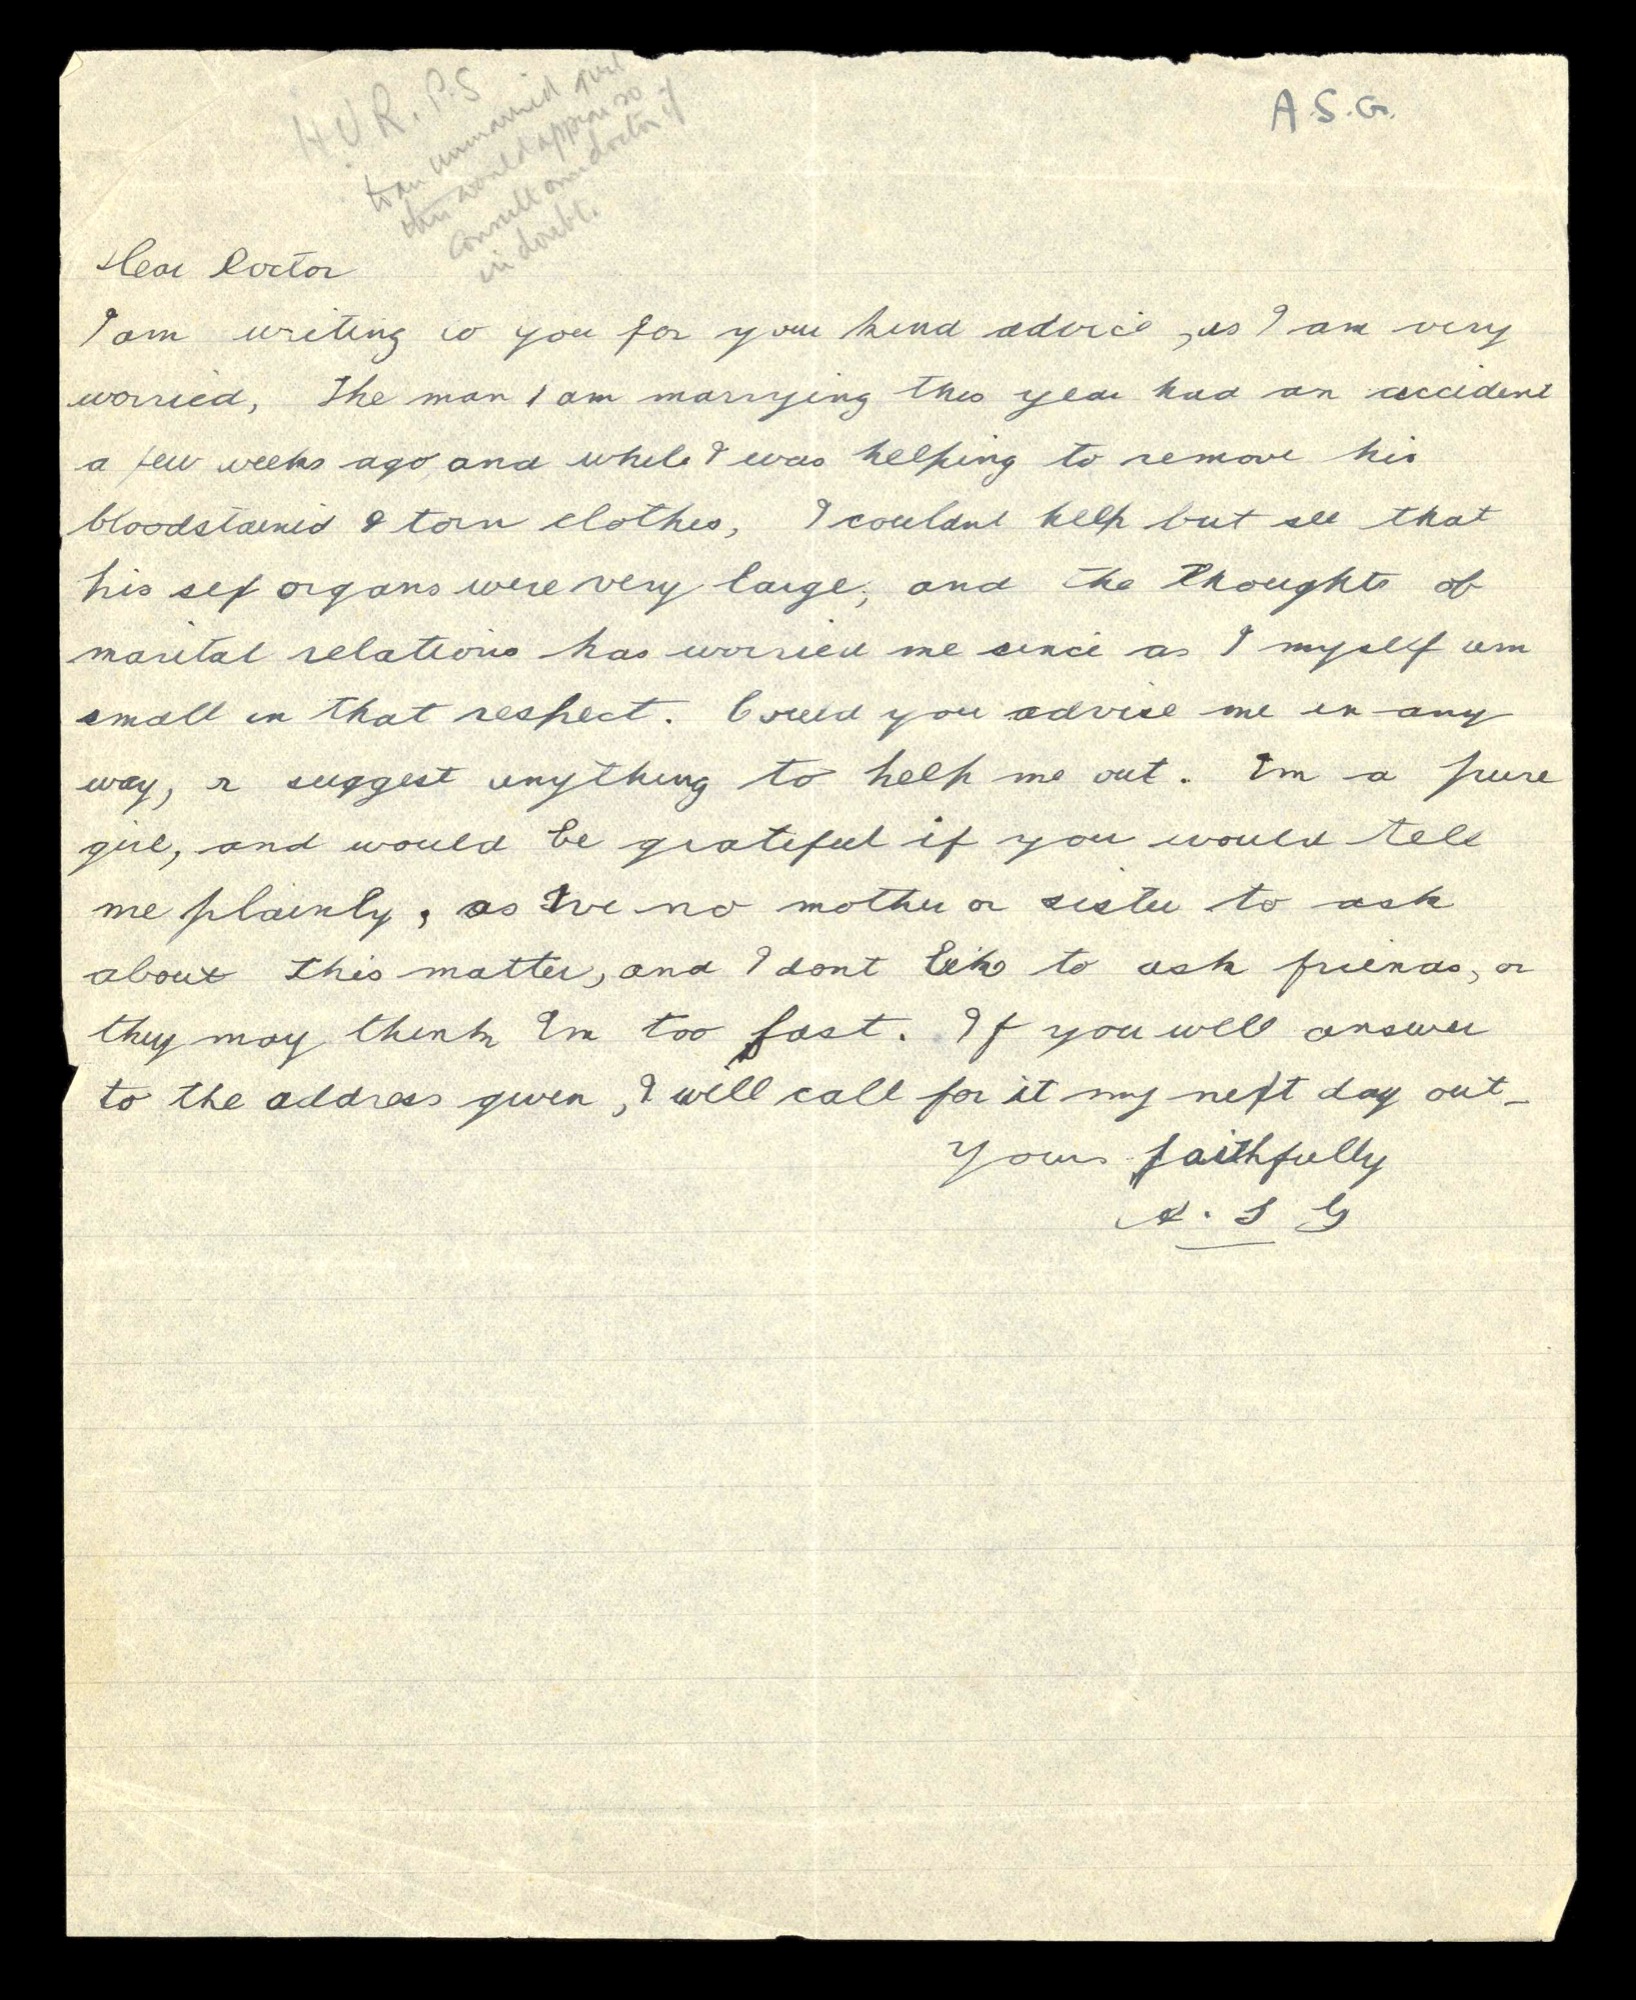 H.V.R. P.S
to an unmarried girl
this would appear so
consult own doctor if
in doubt.
A.S.G.
Dear Doctor
I am writing to you for your kind advice, as I am very
worried, The man I am marrying this year had an accident
a few weeks ago and while I was helping to remove his
bloodstained & torn clothes, I couldnt help but see that
his sex organs were very large, and the thoughts of
marital relations has worried me since as I myself am
small in that respect. Could you advise me in any
way, r suggest anything to help me out. Im a pure
girl, and would be grateful if you would tell
me plainly, as Ive no mother or sister to ask
about this matter, and I dont like to ask friends, or
they may think Im too fast. If you will answer
to the address given, I will call for it my next day out_
Yours faithfully
A. S G